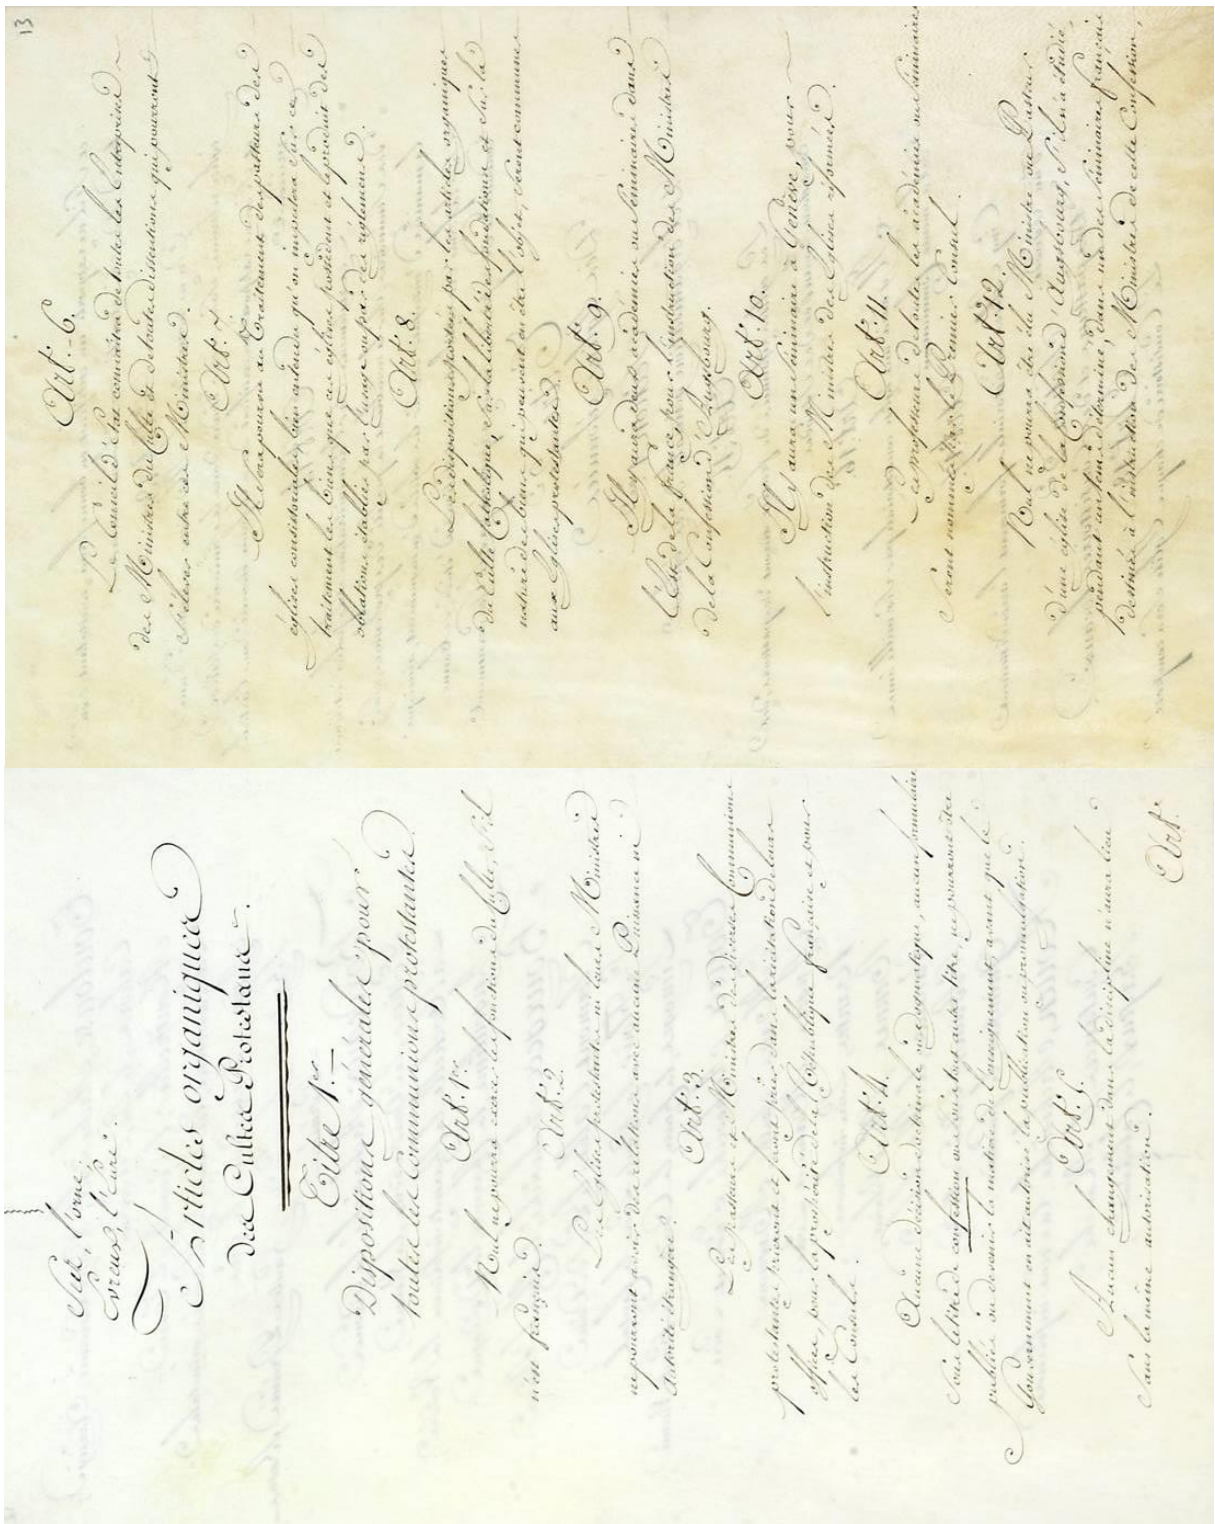 Sur l'orne,
Evreux, l'Eure.
Articles organiques
des Cultes Protestans.
Titre 1er.
Dispositions générales pour
toutes les Communions protestantes.
Art. 1er
Nul ne pourra exercer les fonctions du Culte, s'il
n'est français.
Art. 2.
Les Eglises protestantes ni leurs Ministres
ne pourront avoir des relations avec aucune Puissance ni
autorité étrangère.
Art. 3.
Les pasteurs et Ministres des diverses Communions
protestantes prieront et feront prier dans la récitation de leurs
offices, pour la prospérité de la République française et pour
les Consuls.
Art. 4.
Aucune décision doctrinale ou dogmatique, aucun formulaire
sous le titre de confession ou sous tout autre titre, ne pourront être
publiés ou devenir la matière de l'enseignement, avant que le
Gouvernement en ait autorisé la publication ou promulgation.
Art. 5.
Aucun changement dans la discipline n'aura lieu
sans la même autorisation.
Art.
13
Art. 6.
Le Conseil d'Etat connaîtra de toutes les Entreprises
des Ministres du Culte et de toutes dissentions qui pourront
s'élever entre ces Ministres.
Art. 7.
Il sera pourvu au Traitement des pasteurs des
églises consistoriales, bien entendu qu'on imputera sur ce
traitement les biens que ces églises possèdent et le produit des
oblations établies par l'usage ou par des réglemens.
Art. 8.
Les dispositions portées par les articles organiques
du Culte Catholique, sur la liberté des fondations et sur la
nature des biens qui peuvent en être l'objet, seront communes
aux Eglises protestantes.
Art. 9.
Il y aura deux académies ou Séminaires dans
l'Est de la france, pour l'instruction des Ministres
de la Confession d'Augsbourg.
Art. 10.
Il y aura un Séminaire à Genève, pour
l'instruction des Ministres des Eglises réformées.
Art. 11.
Les professeurs de toutes les académies ou Séminaires
seront nommés par le Premier Consul.
Art. 12.
Nul ne pourra être élu Ministre ou Pasteur
d'une église de la Confession d'Augsbourg, s'il n'a étudié,
pendant un tems déterminé, dans un des Séminaires français
destinés à l'instruction des Ministres de cette Confession,